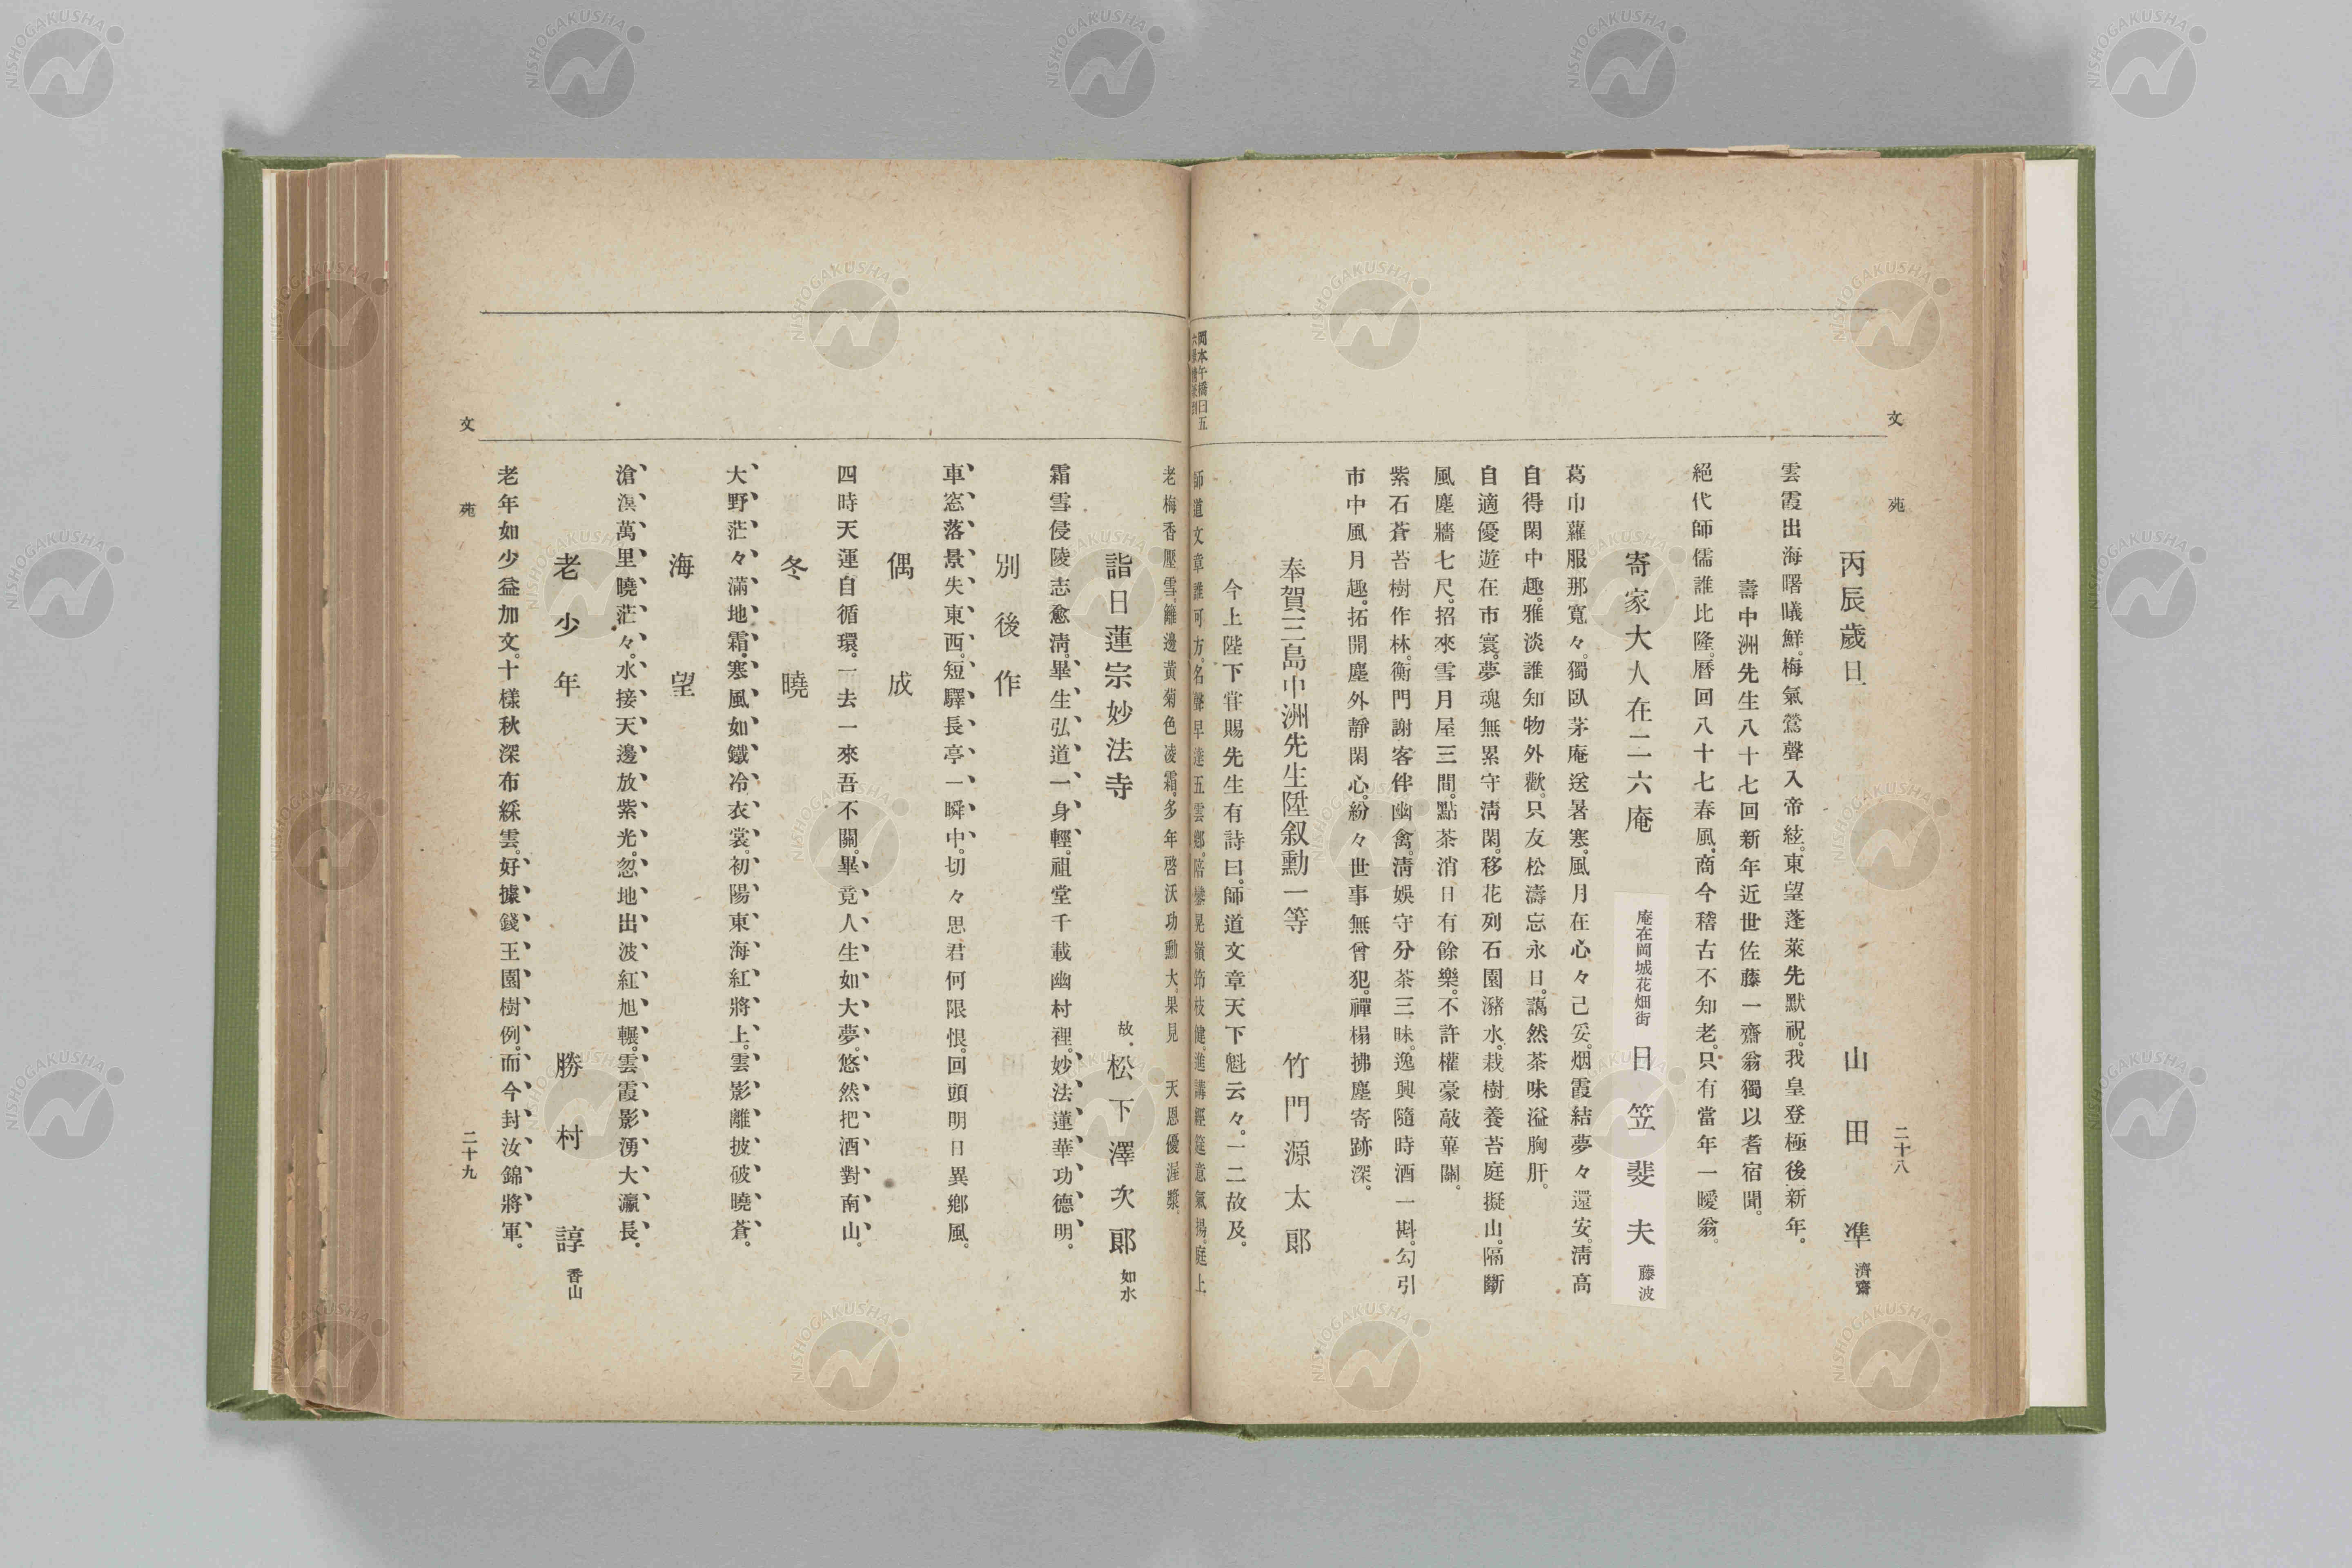 文苑
二十八
丙辰歲旦
山田準 濟齋
雲霞出海曙曦鮮。梅氣鶯聲入帝絃。東望蓬萊先默祝。我皇登極後新年。
壽中洲先生八十七回新年近世佐藤一齋翁獨以耆宿聞。
絕代師儒誰比隆。曆回八十七春風。商今稽古不知老。只有當年一噯翁。
寄家大人在二六庵
庵在岡城花畑街
日笠斐夫 藤波
葛巾蘿服那寬々。獨臥茅庵送暑寒。風月在心々己妥。烟霞結夢々還安。淸高
自得閑中趣。雅淡誰知物外歡。只友松濤忘永日。藹然茶味溢胸肝。
自適優遊在市寰。夢魂無累守淸閑。移花列石園瀦水。栽樹養苔庭擬山。隔斷
風塵牆七尺。招來雪月屋三間。點茶消日有餘樂。不許權豪敲蓽關。
紫石蒼苔樹作林。衡門謝客伴幽禽。淸娛守分茶三昧。逸興隨時酒一斟。勾引
市中風月趣。拓開塵外靜閑心。紛々世事無曾犯。禪榻拂塵寄跡深。
奉賀三島中洲先生陞叙勳一等
竹門源太郞
今上陛下甞賜先生有詩曰。師道文章天下魁云々。一二故及。
岡本午橋曰五
師道文章誰可方。名聲早達五雲鄕。陪攀晃嶺筇枝健。進講經筵意氣揚。庭上
老梅香壓雪。籬邊黃菊色凌霜。多年啓沃功勳大。果見 天恩優渥漿。
詣日蓮宗妙法寺
故 松下澤次郞 如水
霜雪侵陵志愈淸。畢生弘道一身輕。祖堂千載幽村裡。妙法蓮華功德明。
別後作
車窓落景失東西。短驛長亭一瞬中。切々思君何限恨。回頭明日異鄕風。
偶成
四時天運自循環。一去一來吾不關。畢竟人生如大夢。悠然把酒對南山。
冬曉
大野茫々滿地霜。寒風如鐵冷衣裳。初陽東海紅將上。雲影離披破曉蒼。
海望
滄溟萬里曉茫々。水接天邊放紫光。忽地出波紅旭輾。雲霞影湧大瀛長。
老少年
勝村諄 香山
老年如少益加文。十樣秋深布綵雲。好據錢王園樹例。而今封汝錦將軍。
文苑
二十九